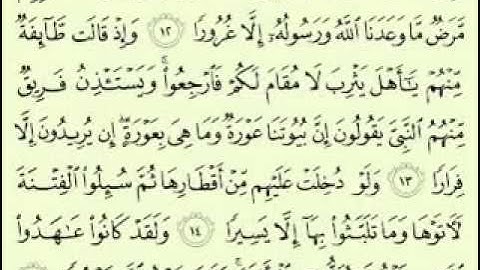 مَّرَضٌ مَّا وَعَدَنَا ٱللَّهُ وَرَسُولُهُۥٓ إِلَّا غُرُورًا ١٢ وَإِذۡ قَالَت طَّآئِفَةٌ
مِّنۡهُمۡ يَٰٓأَهۡلَ يَثۡرِبَ لَا مُقَامَ لَكُمۡ فَٱرۡجِعُواْۚ وَيَسۡتَـٔۡذِنُ فَرِيقٌ
مِّنۡهُمُ ٱلنَّبِيَّ يَقُولُونَ إِنَّ بُيُوتَنَا عَوۡرَةٌ وَمَا هِيَ بِعَوۡرَةٍۖ إِن يُرِيدُونَ إِلَّا
فِرَارًا ١٣ وَلَوۡ دُخِلَتۡ عَلَيۡهِم مِّنۡ أَقۡطَارِهَا ثُمَّ سُئِلُواْ ٱلۡفِتۡنَةَ
لَأٓتَوۡهَا وَمَا تَلَبَّثُواْ بِهَآ إِلَّا يَسِيرًا ١٤ وَلَقَدۡ كَانُواْ عَٰهَدُواْ